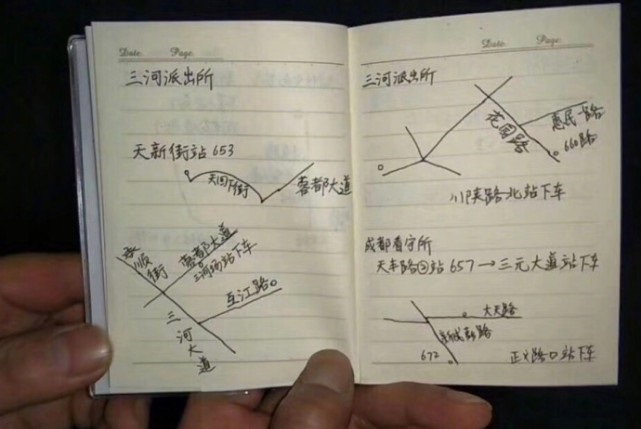 Date. Page.
三河派出所
天新街站 653
天回街
蓉都大道
蓉都大道
三河场站下车
互江路
三河大道
Date. Page.
三河派出所
花园路
惠民一路
660路
川陕路北站下车
成都看守所
天丰路②站 657→三元大道站下车
大天路
672
正义路口站下车